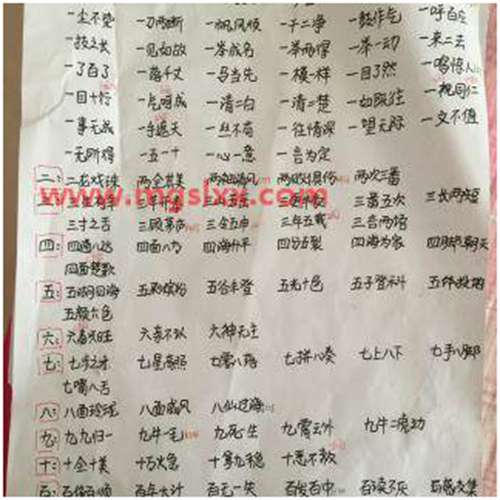 一尘不染 一刀两断 一帆风顺 一干二净 一鼓作气 一呼百应
一技之长 一见如故 一举成名 一举两得 一举一动 一来二去
一了百了 一落千丈 一马当先 一模一样 一目了然 一鸣惊人
一目十行 一气呵成 一清二白 一清二楚 一如既往 一视同仁
一事无成 一手遮天 一丝不苟 一往情深 一望无际 一文不值
一无所得 一五一十 一心一意 一言为定
二: 二龙戏珠 两全其美 两袖清风 两败俱伤 两次三番
www.mgslxx.com
三番五次 三长两短
三寸之舌 三顾茅庐 三令五申 三年五载 三言两语
四: 四通八达 四面八方 四海升平 四分五裂 四海为家 四脚朝天
四面楚歌
五: 五湖四海 五彩缤纷 五谷丰登 五光十色 五子登科 五体投地
五颜六色
六: 六畜兴旺 六亲不认 六神无主
七: 七步之才 七星高照 七零八落 七拼八凑 七上八下 七手八脚
七嘴八舌
八: 八面玲珑 八面威风 八仙过海
九: 九九归一 九牛一毛 九死一生 九霄云外 九牛二虎
十: 十全十美 十万火急 十拿九稳 十恶不赦
百: 百依百顺 百年大计 百无一失 百发百中 百读不厌 百废